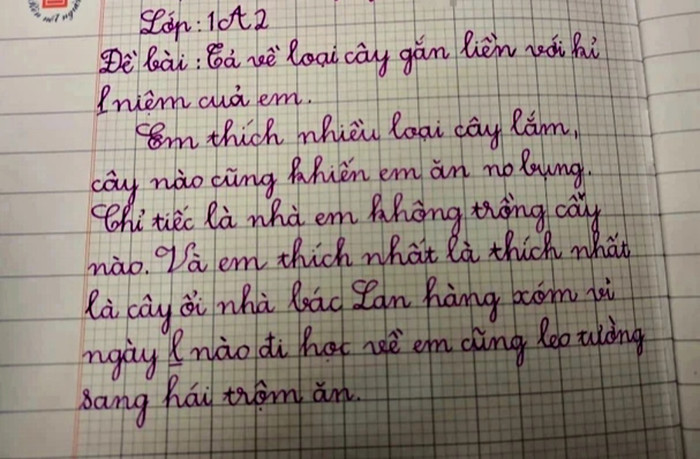 Lớp: 1A2
Đề bài: Tả về loại cây gắn liền với kỉ
niệm cuả em.
Em thích nhiều loại cây lắm,
cây nào cũng khiến em ăn no bụng.
Chỉ tiếc là nhà em không trồng cấy
nào. Và em thích nhất là thích nhất
là cây ổi nhà bác Lan hàng xóm vì
ngày nào đi học về em cũng leo tường
sang hái trộm ăn.